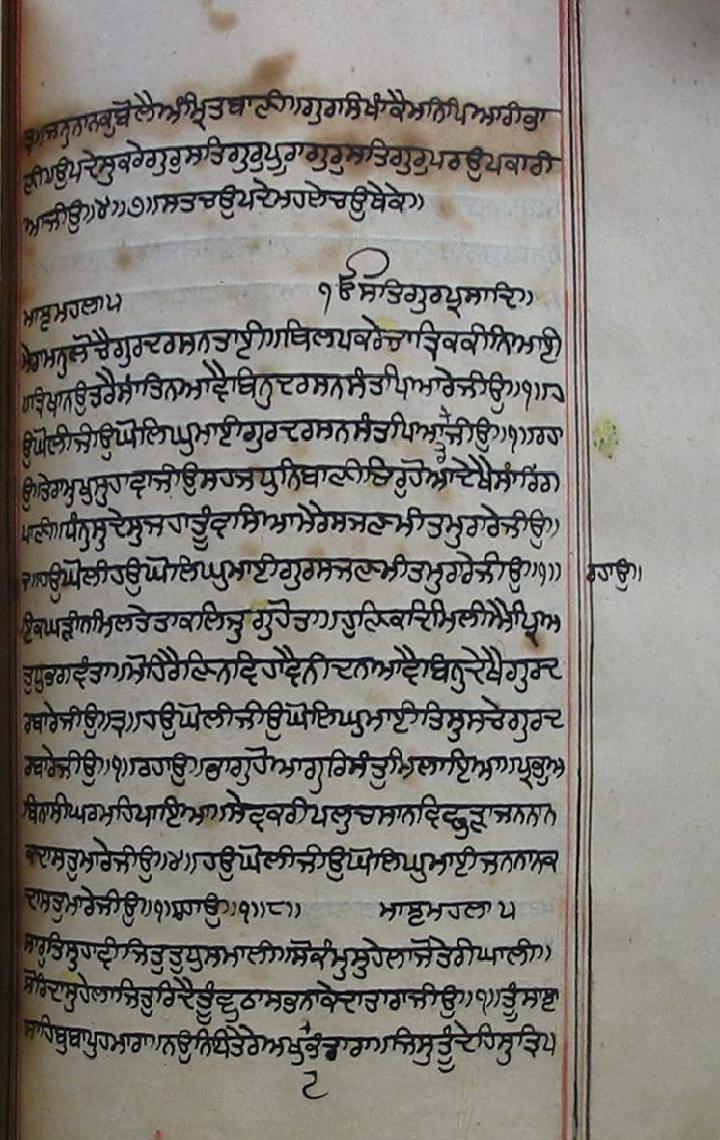 ੩॥ਜਨੁਨਾਨਕੁਬੋਲੈਅੰਮ੍ਰਿਤਬਾਣੀ॥ਗੁਰਸਿਖਾਂਕੈਮਨਿਪਿਆਰੀਭਾ
ਣੀ॥ਉਪਦੇਸੁਕਰੇਗੁਰੁਸਤਿਗੁਰੁਪੂਰਾਗੁਰੁਸਤਿਗੁਰੁਪਰਉਪਕਾਰੀ
ਆਜੀਉ॥੪॥੭॥ਸਤਚਉਪਦੇਮਹਲੇਚਉਥੇਕੇ॥
ੴਸਤਿਗੁਰਪ੍ਰਸਾਦਿ॥
ਮਾਝਮਹਲਾ੫
ਮੇਰਾਮਨੁਲੋਚੈਗੁਰਦਰਸਨਤਾਈ॥ਬਿਲਪਕਰੇਚਾਤ੍ਰਿਕਕੀਨਿਆਈ
ਤ੍ਰਿਖਾਨਉਤਰੈਸਾਂਤਿਨਆਵੈਬਿਨੁਦਰਸਨਸੰਤਪਿਆਰੇਜੀਉ॥੧॥ਹ
ਉਘੋਲੀਜੀਉਘੋਲਿਘੁਮਾਈਗੁਰਦਰਸਨਸੰਤਪਿਆਰੇਜੀਉ॥੧॥ਰਹਾ
ਉ॥ਤੇਰਾਮੁਖੁਸੁਹਾਵਾਜੀਉਸਹਜਧੁਨਿਬਾਣੀ॥ਚਿਰੁਹੋਆਦੇਖੇਸਾਰਿੰਗ
ਪਾਣੀ॥ਧੰਨੁਸੁਦੇਸੁਜਹਾਤੂੰਵਸਿਆਮੇਰੇਸਜਣਮੀਤਮੁਰਾਰੇਜੀਉ॥
੨॥ਹਉਘੋਲੀਹਉਘੋਲਿਘੁਮਾਈਗੁਰਸਜਣਮੀਤਮੁਰਾਰੇਜੀਉ॥੧॥ ਰਹਾਉ॥
ਇਕਘੜੀਨਮਿਲਤੇਤਾਕਲਿਜੁਗੁਹੋਤਾ॥ਹੁਣਿਕਦਿਮਿਲੀਐਪ੍ਰਿਅ
ਤੁਧੁਭਗਵੰਤਾ॥ਮੋਹਿਰੈਣਿਨਵਿਹਾਵੈਨੀਦਨਆਵੈਬਿਨੁਦੇਖੈਗੁਰਦ
ਰਬਾਰੇਜੀਉ॥੩॥ਹਉਘੋਲੀਜੀਉਘੋਲਿਘੁਮਾਈਤਿਸੁਸਚੇਗੁਰਦ
ਰਬਾਰੇਜੀਉ॥੧॥ਰਹਾਉ॥ਭਾਗੁਹੋਆਗੁਰਿਸੰਤੁਮਿਲਾਇਆ॥ਪ੍ਰਭੁਅ
ਬਿਨਾਸੀਘਰਮਹਿਪਾਇਆ॥ਸੇਵਕਰੀਪਲੁਚਸਾਨਵਿਛੁੜਾਜਨਨਾਨ
ਕਦਾਸਤੁਮਾਰੇਜੀਉ॥੪॥ਹਉਘੋਲੀਜੀਉਘੋਲਿਘੁਮਾਈਜਨਨਾਨਕ
ਦਾਸਤੁਮਾਰੇਜੀਉ॥੧॥ਰਹਾਉ॥੧॥੮॥ ਮਾਝਮਹਲਾ੫
ਸਾਰੁਤਿਸੁਹਾਵੀਜਿਤੁਤੁਧੁਸਮਾਲੀ॥ਸੋਕੰਮੁਸੁਹੇਲਾਜੋਤੇਰੀਘਾਲੀ॥
ਸੋਰਿਦਾਸੁਹੇਲਾਜਿਤੁਰਿਦੈਤੂੰਵੁਠਾਸਭਨਾਕੇਦਾਤਾਰਾਜੀਉ॥੧॥ਤੂੰਸਾਝਾ
ਸਾਹਿਬੁਬਾਪੁਹਮਾਰਾ॥ਨਉਨਿਧਿਤੇਰੇਅਖੁਟਭੰਡਾਰਾ॥ਜਿਸੁਤੂੰਦੇਹਿਸੁਤ੍ਰਿਪ
੮